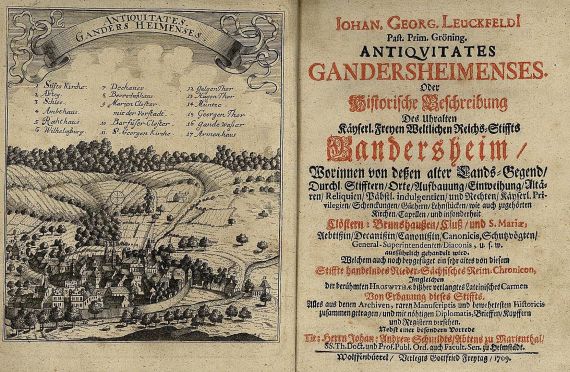 ANTIQUITATES
GANDERS HEIMENSES.
1 Stifts Kirche.
2 Abtey
3 Schloss
4 Ambthaus
5 Rahthaus
6 Wilhelmsburg
7 Dechaney
9 Marien Closter
mit der Vorstadt
10 Barfüsser-Closter
11 S. Georgen Kirche
12 Galgen Thor
14 Müntze
15 Georgen Thor
16 Gande wasser
17 Armenhaus
IOHAN. GEORG. LEUCKFELDI
Past. Prim. Gröning.
ANTIQVITATES
GANDERSHEIMENSES.
Oder
Historische Beschreibung
Des Uhralten
Käyserl. Freyen Weltlichen Reichs-Stiffts
Gandersheim /
Worinnen von deßen alter Lands-Gegend /
Durchl. Stifftern / Orte / Aufbauung / Einweihung / Altä-
ren / Reliquien / Päbstl. indulgentien / und Rechten / Käyserl. Pri-
vilegien / Schenckungen / Gütern / Lehnstücken / wie auch zugehörten
Kirchen, Capellen / und insonderheit
Clöstern: Brunshaußen / Cluß / und S. Mariæ,
Aebtißin / Decanißin / Canonißin / Canonicis, Schutzvögten /
General-Superintendenten / Diaconis, u. s. w.
ausführlich gehandelt wird.
Welchem auch noch beygefüget ein sehr altes von diesem
Stiffte handelndes Nieder-Sächsisches Reim-Chronicon,
Imgleichen
der berühmten HROSWITHÆ bißher verlangtes Lateinisches Carmen
Von Erbauung dieses Stiffts.
Alles aus denen Archiven, raren Manuscriptis und bewehrtesten Historicis
zusammen getragen / und mit nöhtigen Diplomatis, Brieffen / Kupffern
und Registern versehen.
Nebst einer besondern Vorrede
Tit: Herrn Johan: Andreæ Schmidts / Abtens zu Marienthal /
SS. Th. Doct. und Prof. Publ. Ord. auch Facult. Sen. zu Helmstädt.
Wolffenbüttel / Verlegts Gottfried Freytag / 1709.